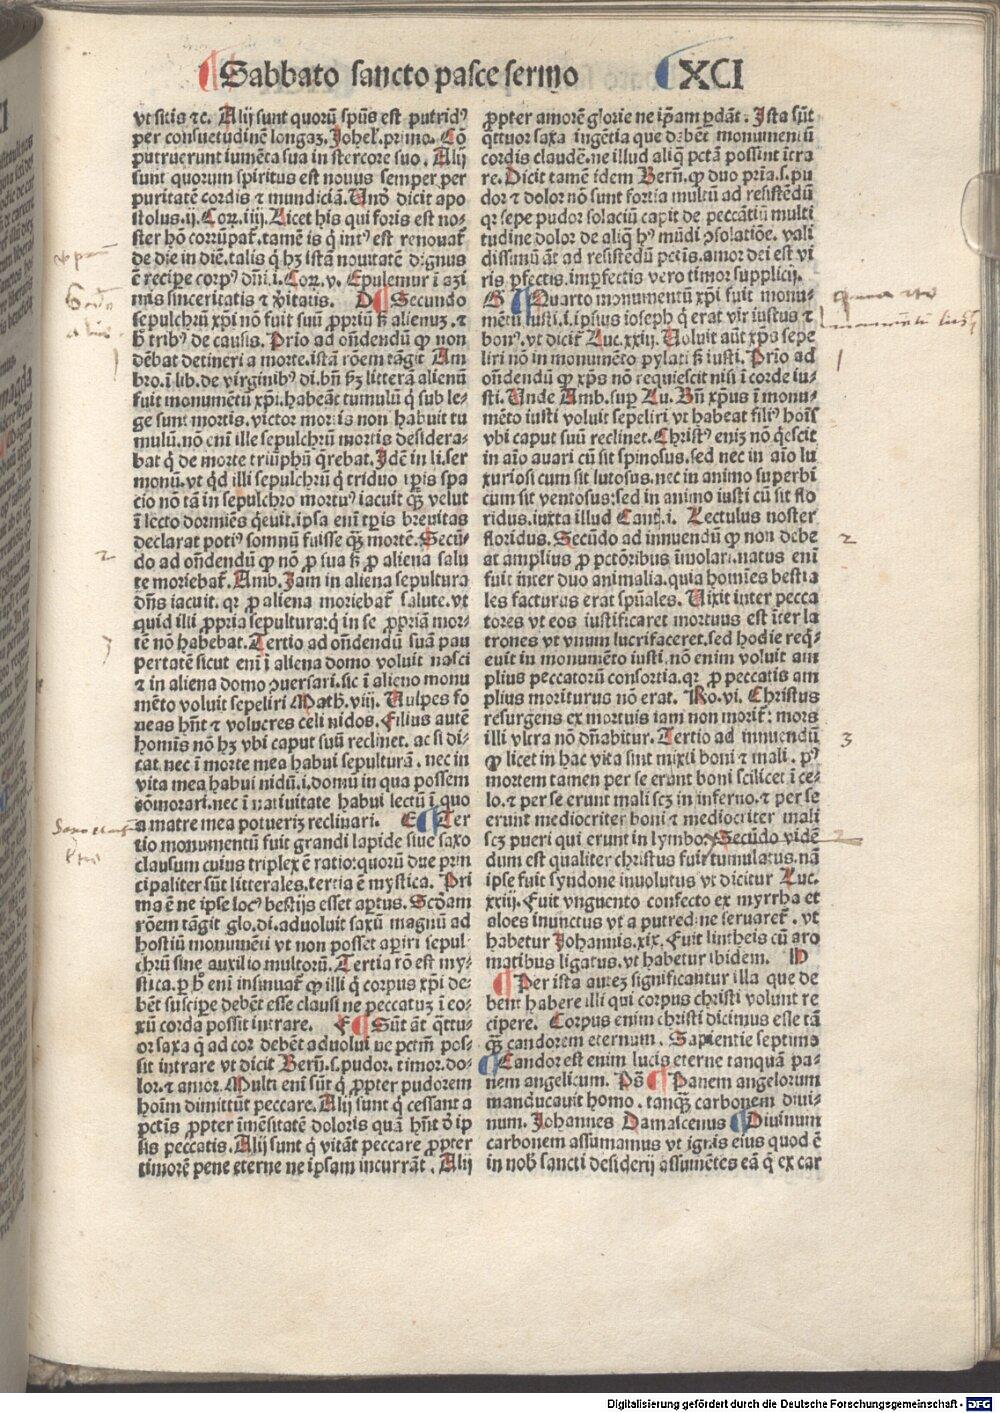 Sabbato sancto pasce sermo XCI
vt sitis ⁊c. Alij sunt quorū spūs est putridꝰ
per consuetudinē longaȝ. Johel'. primo. Cō
putruerunt iumēta sua in stercore suo. Alij
sunt quorum spiritus est nouus semper per
puritatē cordis ⁊ mundiciā. Unđ dicit apo
stolus. ij. Coꝝ. iiij. Licet his qui foris est no⸗
ster hō corrūpat̄. tamē is q̇ intꝰ est renouat̄
de die in diē. talis q̇ hȝ istā nouitatē dignus
ē recipe corpꝰ dn̄i. i. Coꝝ. v. Epulemur ī aȝi
mis sinceritatis ⁊ v̄itatis. D Secundo
sepulchrū xp̄i nō fuit suū ꝓpriū sȝ alienuȝ. ⁊
h̄ tribꝰ de causis. Prīo ad on̄dendū ꝙ non
dēbat detineri a morte. istā rōem tāgit Am
bro. ī lib. de virginibꝰ di. bn̄ sȝ litterā alienū
fuit monumētū xp̄i. habeāt tumulū q̇ sub le⸗
ge sunt mortis. victor mortis non habuit tu
mulū. nō enī ille sepulchrū mortis desidera⸗
bat q̇ de morte triūphū q̄rebat. Jdē in li. ser
monū. vt q̇d illi sepulchrū q̇ triduo tp̄is spa
cio nō tā in sepulchro mortuꝰ iacuit qȝ velut
ī lecto dormiēs q̇euit. ipsa enī tp̄is breuitas
declarat potiꝰ somnū fuisse qȝ mortē. Secū⸗
do ad on̄dendū ꝙ nō ꝓ sua sȝ ꝓ aliena salu
te moriebat̄. Amb. Jam in aliena sepultura
dn̄s iacuit. qꝛ ꝓ aliena moriebat̄ salute. vt
quid illi ꝓpria sepultura: q̇ in se ꝓpriā mor⸗
tē nō habebat. Tertio ad on̄dendū suā pau
pertatē sicut enī ī aliena domo voluit nasci
⁊ in aliena domo ꝯuersari. sic ī alieno monu
mēto voluit sepeliri Math. viij. Uulpes fo
ueas hn̄t ⁊ volucres celi nidos. Filius autē
homīs nō hȝ vbi caput suū reclinet. ac si di⸗
cat. nec ī morte mea habui sepulturā. nec in
vita mea habui nidū. i. domū in qua possem
cōmorari. nec ī natiuitate habui lectū ī quo
a matre mea potuerīȝ reclinari. E Ter
tio monumentū fuit grandi lapide siue saxo
clausum cuius triplex ē ratio: quorū due prin
cipaliter sūt litterales. tertia ē mystica. Pri
ma ē ne ipse locꝰ bestijs esset aꝑtus. Scđam
rōem tāgit glo. di. aduoluit saxū magnū ad
hostiū monumēti vt non posset aꝑiri sepul
chrū sine auxilio multorū. Tertia rō est my⸗
stica. ꝑ h̄ enī insinuat̄ ꝙ illi q̇ corpus xp̄i de⸗
bēt suscipe debēt esse clausi ne peccatuȝ ī eo⸗
xū corda possit intrare. F Sūt āt q̄ttu⸗
or saxa q̇ ad cor debēt aduolui ne pctm̄ pos⸗
sit intrare vt dicit Berñ. s. pudor. timor. do⸗
lor. ⁊ amor. Multi enī sūt q̇ ꝓpter pudorem
hoīm dimittūt peccare. Alij sunt q̇ cessant a
pctīs ꝓpter īmēsitatē doloris quā hn̄t đ ip
sis peccatis. Alij sunt q̇ vitāt peccare ꝓpter
timorē pene eterne ne ip̄am incurrāt. Alij
ꝓpter amorē glorie ne ip̄am ꝑdāt. Ista sūt
q̄ttuor saxa ingētia que debēt monumentū
cordis claudē. ne illud aliq̄ pctā possint itra
re. Dicit tamē idem Berñ. ꝙ duo pria. s. pu
dor ⁊ dolor nō sunt fortia multū ad resistēdū
qꝛ sepe pudor solaciū capit de peccātiū multi
tudine dolor de aliq̇ hꝰ mūdi ꝯsolatiōe. vali
dissimū āt ad resistēdū pctis. amor dei est vi
ris ꝑfectis. imꝑfectis vero timor supplicij.
G Quarto monumentū xp̄i fuit monu⸗
mētū iusti. i. ipsius ioseph q̇ erat vir iustus ⁊
bonꝰ. vt dicit Luc. xxiij. Uoluit aūt xp̄s sepe
liri nō in monumēto pylati sȝ iusti. Prīo ad
on̄dendū ꝙ xp̄s nō requiescit nisi ī corde iu⸗
sti. Unde Amb. sup Lu. Bn̄ xp̄us ī monu⸗
mēto iusti voluit sepeliri vt habeat filiꝰ hoīs
vbi caput suū reclinet. Christꝰ eniȝ nō q̇escit
in aīo auari cū sit spinosus. sed nec in aīo lu
xuriosi cum sit lutosus. nec in animo superbi
cum sit ventosus: sed in animo iusti cū sit flo
ridus. iuxta illud Canđ. i. Lectulus noster
floridus. Secūdo ad innuendū ꝙ non debe
at amplius ꝓ pctōribus īmolari. natus enī
fuit inter duo animalia. quia homīes bestia
les facturus erat spūales. Uixit inter pecca
tores vt eos iustificaret mortuus est īter la
trones vt vnum lucrifaceret. sed hodie req̇⸗
euit in monumēto iusti. nō enim voluit am
plius peccatorū consortia. qꝛ ꝓ peccatis am
plius moriturus nō erat. Ro. vi. Christus
resurgens ex mortuis iam non morit̄: mors
illi vltra nō dn̄abitur. Tertio ad innuendū
ꝙ licet in hac vita sint mixti boni ⁊ mali. pꝰ
mortem tamen per se erunt boni scilicet ī ce⸗
lo. ⁊ per se erunt mali scȝ in inferno. ⁊ per se
erunt mediocriter boni ⁊ mediocriter mali
scȝ pueri qui erunt in lymbo. Secūdo vidē
dum est qualiter christus fuit tumulatus. nā
ipse fuit syndone inuolutus vt dicitur Luc.
xxiij. Fuit vnguento confecto ex myrrha et
aloes inunctus vt a putredine seruaret̄. vt
habetur Johannis. xix. Fuit lintheis cū aro
matibus ligatus. vt habetur ibidem. H
Per ista auteȝ significantur illa que de
bent habere illi qui corpus christi volunt re
cipere. Corpus enim christi dicimus esse tā
qȝ candorem eternum. Sapientie septimo
Candor est enim lucis eterne tanquā pa⸗
nem angelicum. Ps̄ Panem angelorum
manducauit homo. tanqȝ carbonem diui⸗
num. Johannes Damascenus Diuinum
carbonem assumamus vt ignis eius quod ē
in nob̄ sancti desiderij assumētes eā q̇ ex car
1
2
3
1
2
3
2
Digitalisierung gefördert durch die Deutsche Forschungsgemeinschaft - DFG